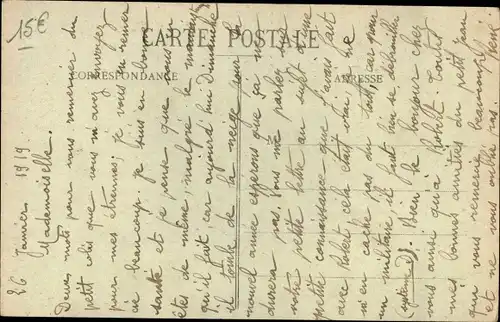 15€
CARTE POSTALE
CORRESPONDANCE
ADRESSE
26 Janvier 1919
Mademoiselle.
Deux mots pour vous remercier du
petit colis que vous m'avez envoyez
pour mes étrennes; je vous en remercie
beaucoup. je suis en bonne
santé et je pense que vous en
êtes de même, malgré le mauvais temps
qu'il fait car aujourd'hui Dimanche
il tombe de la neige pour la
nouvel année esperons que ça nous
durera pas. Vous me parler sur
votre petite lettre au sujet d'une
petite connaissance que j'avais fait
avec Robert, cela était vrai, je ne
m'en cache pas du tout, car pour
un militaire il faut bien se débrouiller
(système D). Bien le bonjour chez
vous ainsi qu'a Robert. Toutes
mes bonnes amitiés du petit jean
qui vous remercie beaucoup
et ne vous oublie pas.